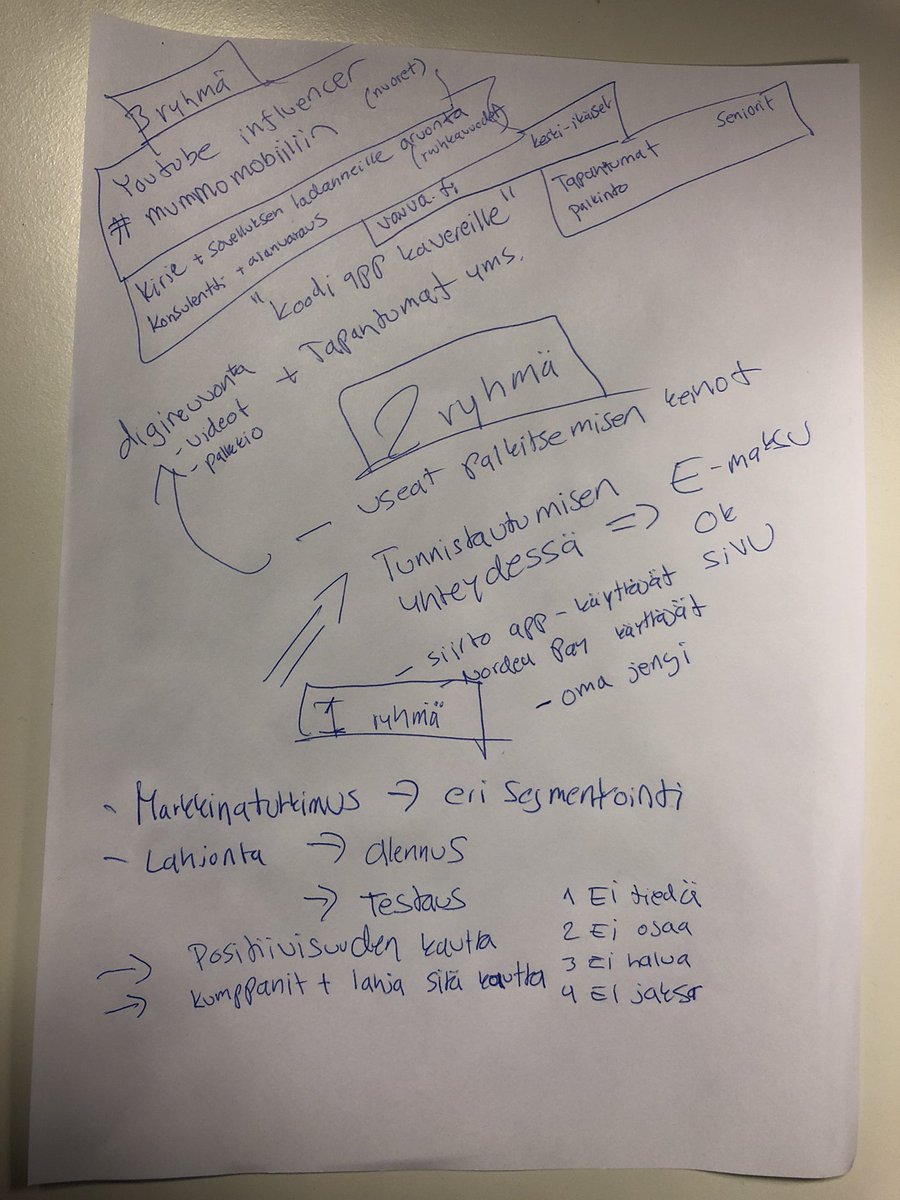 3 ryhmä
Youtube influencer
# mummomobiiliin (nuoret)
Kirje + sovelluksen ladanneille arvonta
(ruhkavuodet)
konsulentti + ajanvaraus
vauva.fi
keski-ikäiset
Seniorit
Tapahtumat
palkinto
"koodi app kavereille"
+ Tapahtumat yms.
digineuvonta
- videot
- palkkio
2 ryhmä
- useat palkitsemisen keinot
Tunnistautumisen
yhteydessä => E-maksu
ok
sivu
- siirto app - käyttävät
- Nordea Pay käyttävät
- oma jengi
1 ryhmä
- Markkinatutkimus → eri segmentointi
- Lahjonta → alennus
→ Testaus
→ Positiivisuuden kautta
→ kumppanit + lahja sitä kautta
1 Ei tiedä
2 Ei osaa
3 Ei halua
4 Ei jaksa